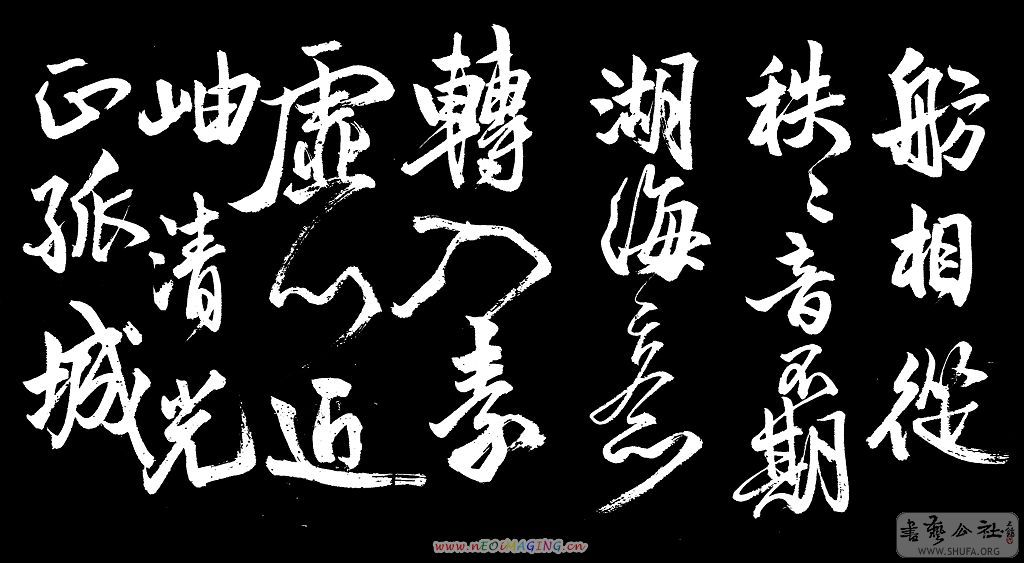 舫相從
秩〻音不期
湖海意
轉入素
虛心近
岫清光
正孤城
www.nEOiMAGING.cn
書藝公社
WWW.SHUFA.ORG